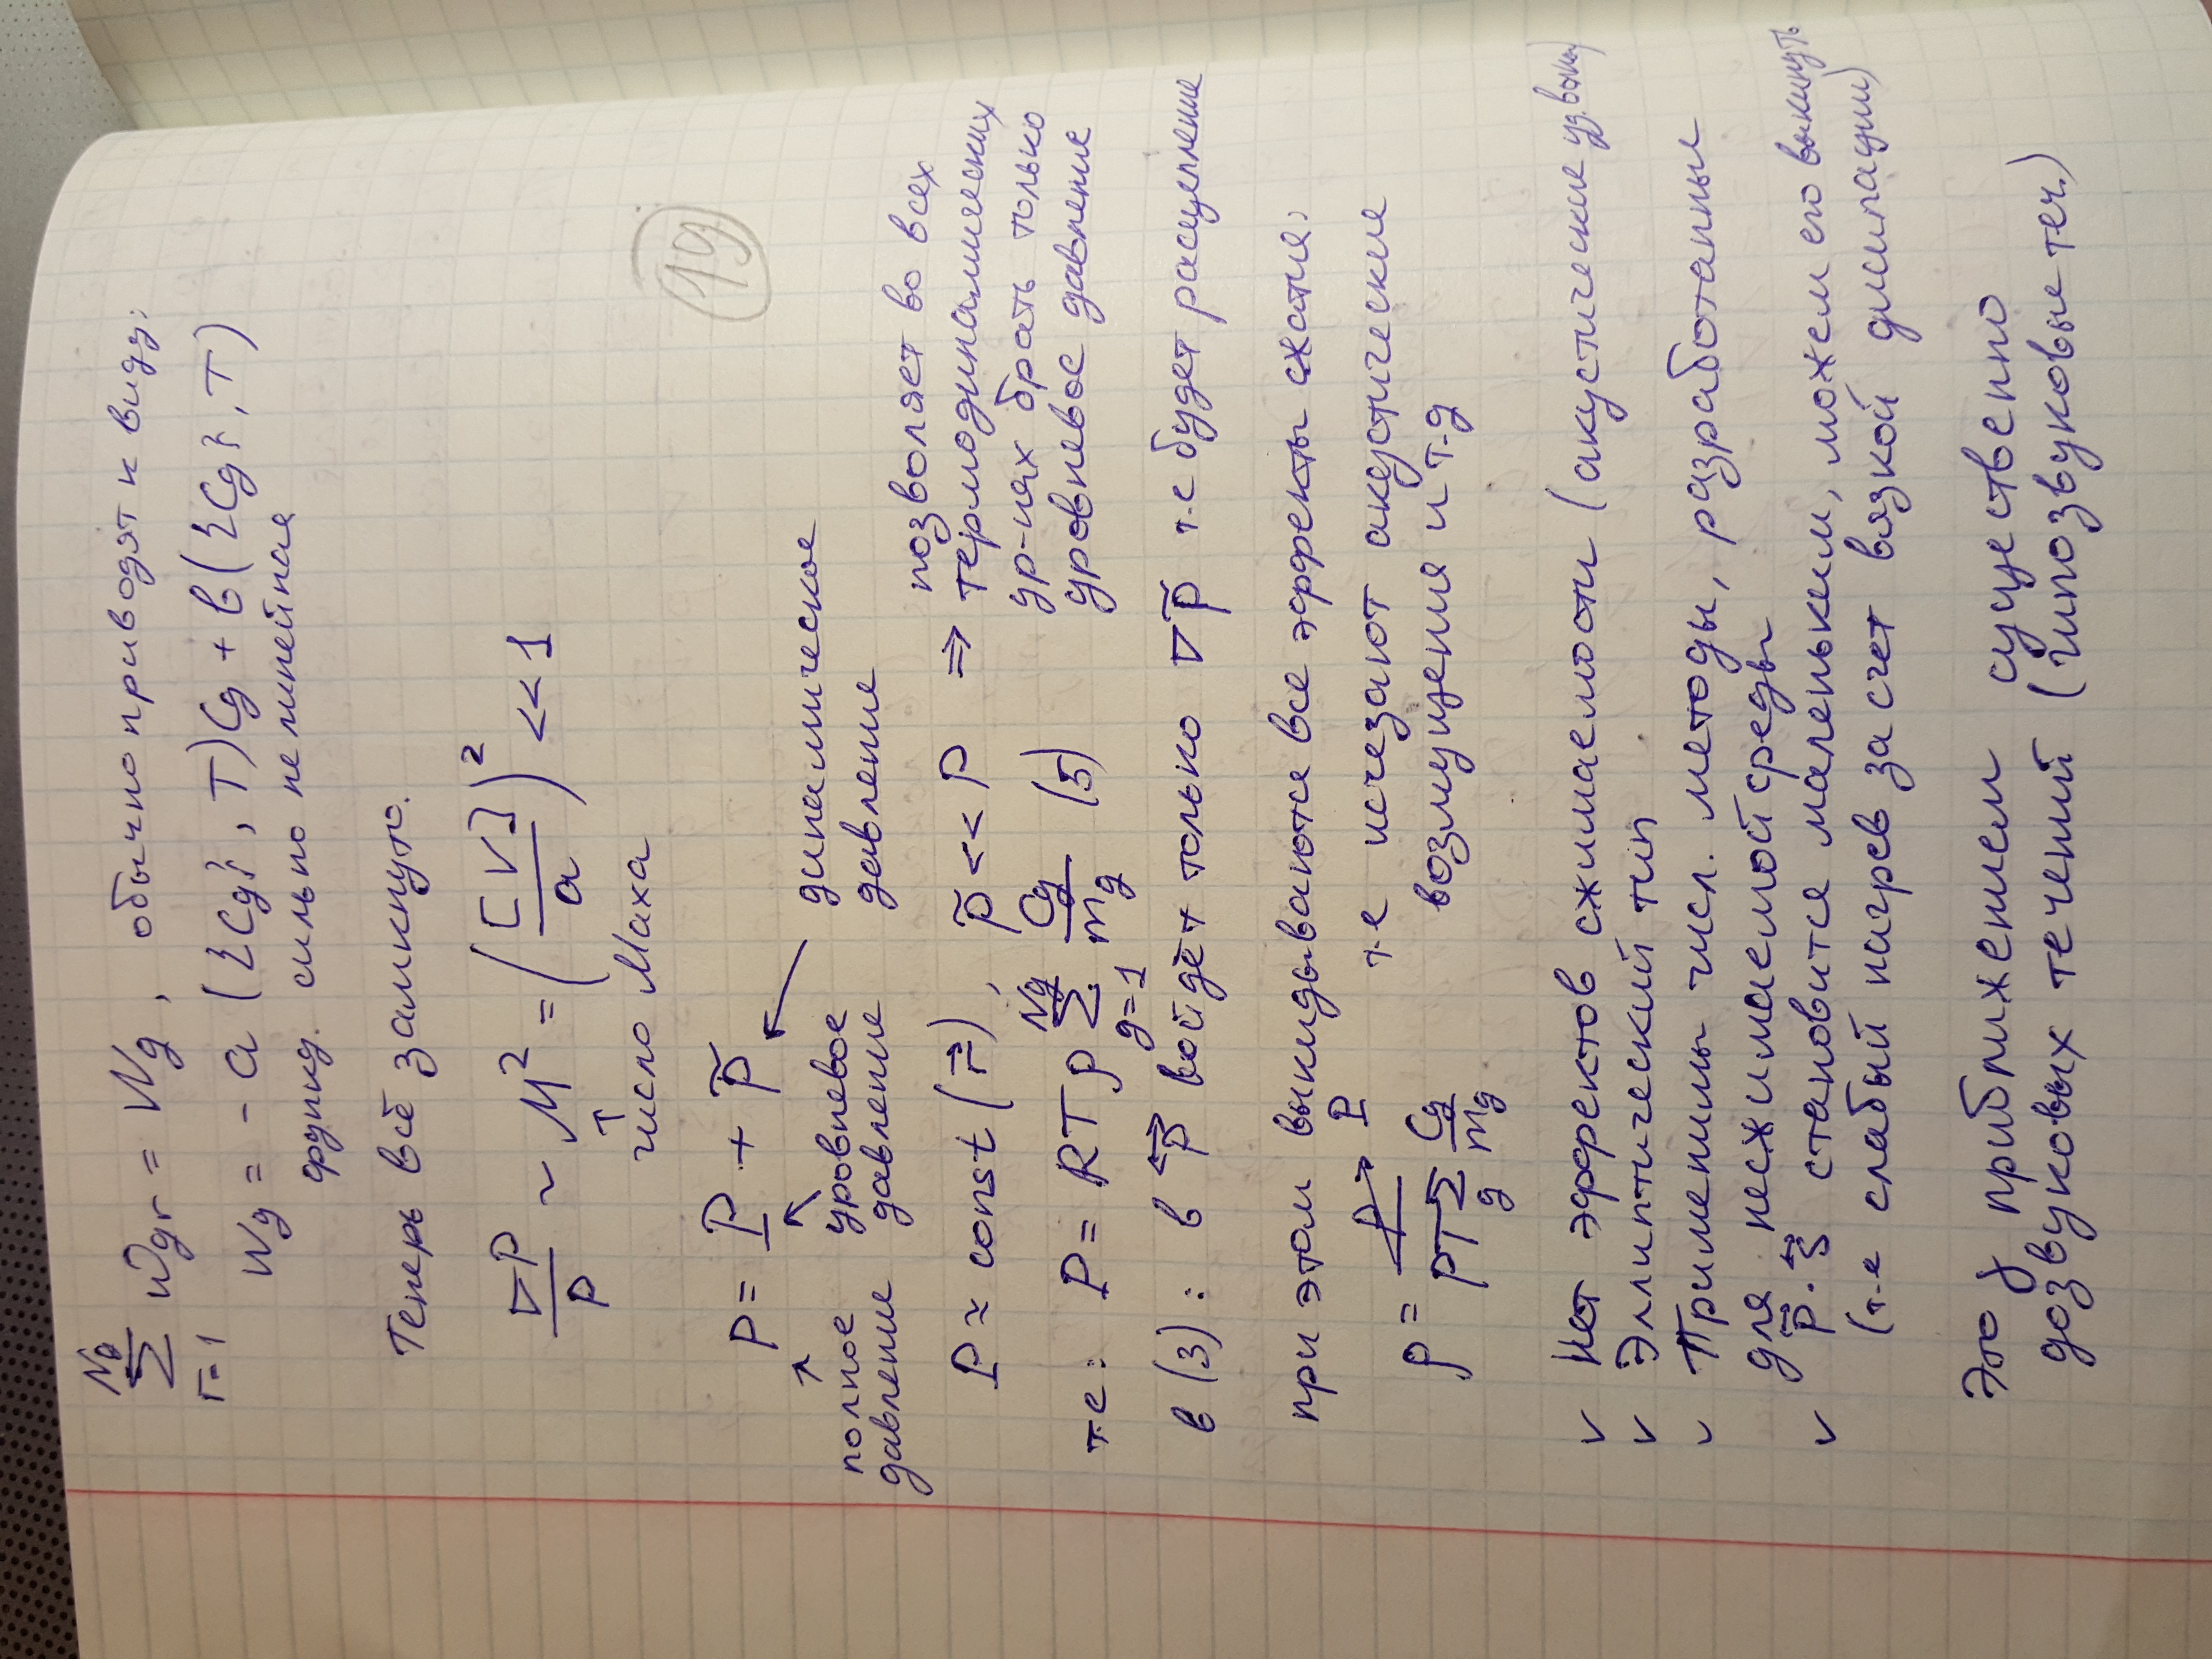 N₀
∑ ẇgr = Wg, обычно приводят к виду:
r=1
Wg = - a ({Cg}, T)Cg + b({Cg}, T)
функц. сильно нелинейная
Теперь всё замкнуто.
∇P/P ~ M² = ([V]/a)² << 1
↑
число Маха
19
p = P + p̃
полное давление
уровневое давление
динамическое давление
P ≈ const(r⃗), p̃ << P ⇒ позволяет во всех
термодинамических
ур-иях брать только
уровневое давление
т.е: P = RTρ ∑ Cg/mg (5)
Ng
g=1
в (3): в P⃡ войдёт только ∇p̃ т.е будет расщепление
при этом выкидываются все эффекты сжатия:
ρ = p→P / PT∑ Cg/mg
g
т.е исчезают акустические
возмущения и т.д
v Нет эффектов сжимаемости (акустические уд. волны)
v Эллиптический тип
v Применимы числ. методы, разработанные
для несжимаемой среды
v P⃡·S⃡ становится маленьким, можем его выкинуть
(т.е слабый нагрев за счет вязкой дисипации)
Это приближением существенно
дозвуковых течений (гипозвуковые теч.)